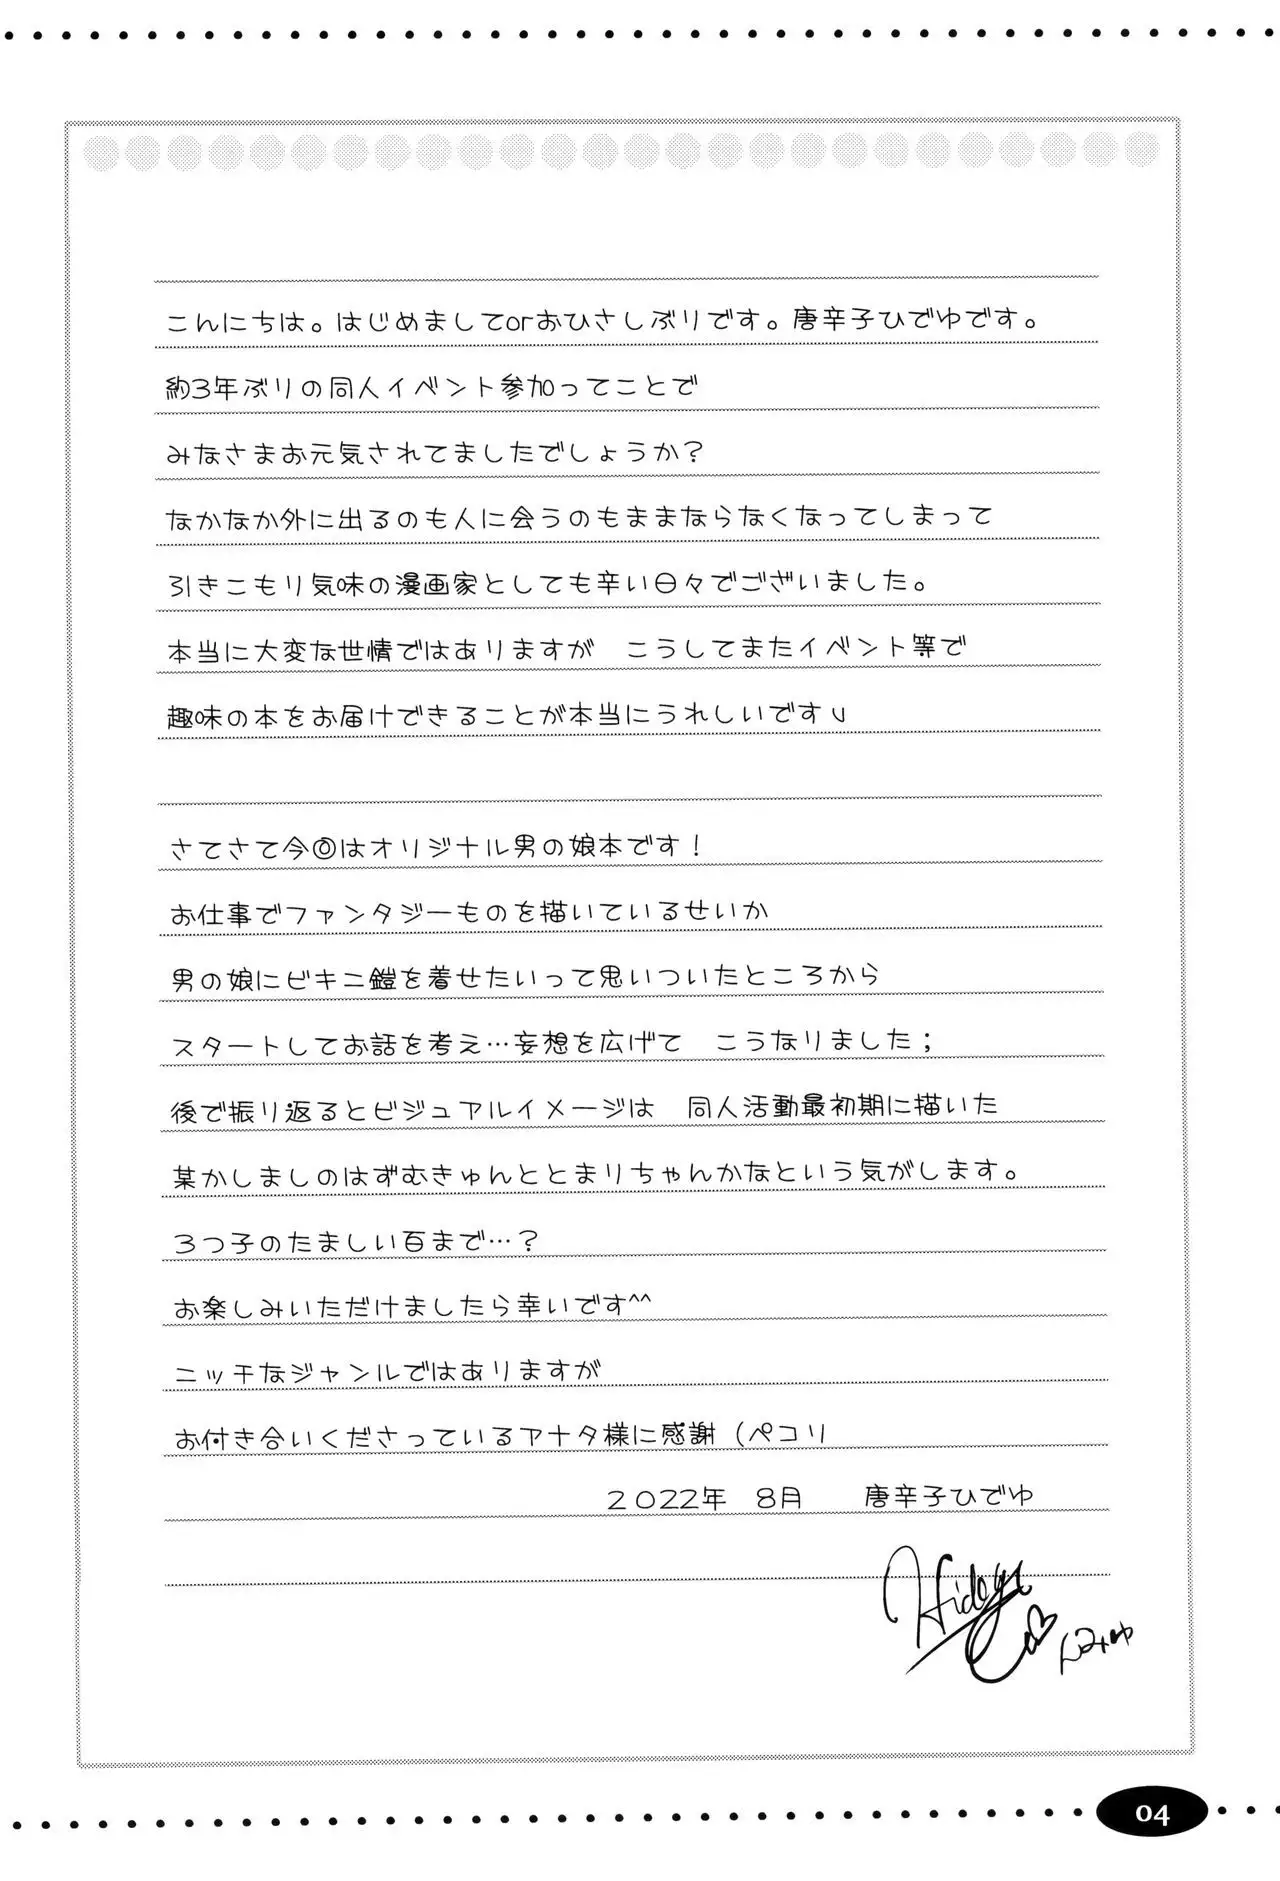 こんにちは。はじめましてorおひさしぶりです。唐辛子ひでゆです。
約3年ぶりの同人イベント参加ってことで
みなさまお元気されてましたでしょうか？
なかなか外に出るのも人に会うのもままならなくなってしまって
引きこもり気味の漫画家としても辛い日々でございました。
本当に大変な世情ではありますが　こうしてまたイベント等で
趣味の本をお届けできることが本当にうれしいです
さてさて今回はオリジナル男の娘本です！
お仕事でファンタジーものを描いているせいか
男の娘にビキニ鎧を着せたいって思いついたところから
スタートしてお話を考え…妄想を広げて　こうなりました；
後で振り返るとビジュアルイメージは　同人活動最初期に描いた
某かしましのはずむきゅんととまりちゃんかなという気がします。
３つ子のたましい百まで…？
お楽しみいただけましたら幸いです^^
ニッチなジャンルではありますが
お付き合いくださっているアナタ様に感謝（ペコリ
２０２２年　８月　　唐辛子ひでゆ
Hideyu
04